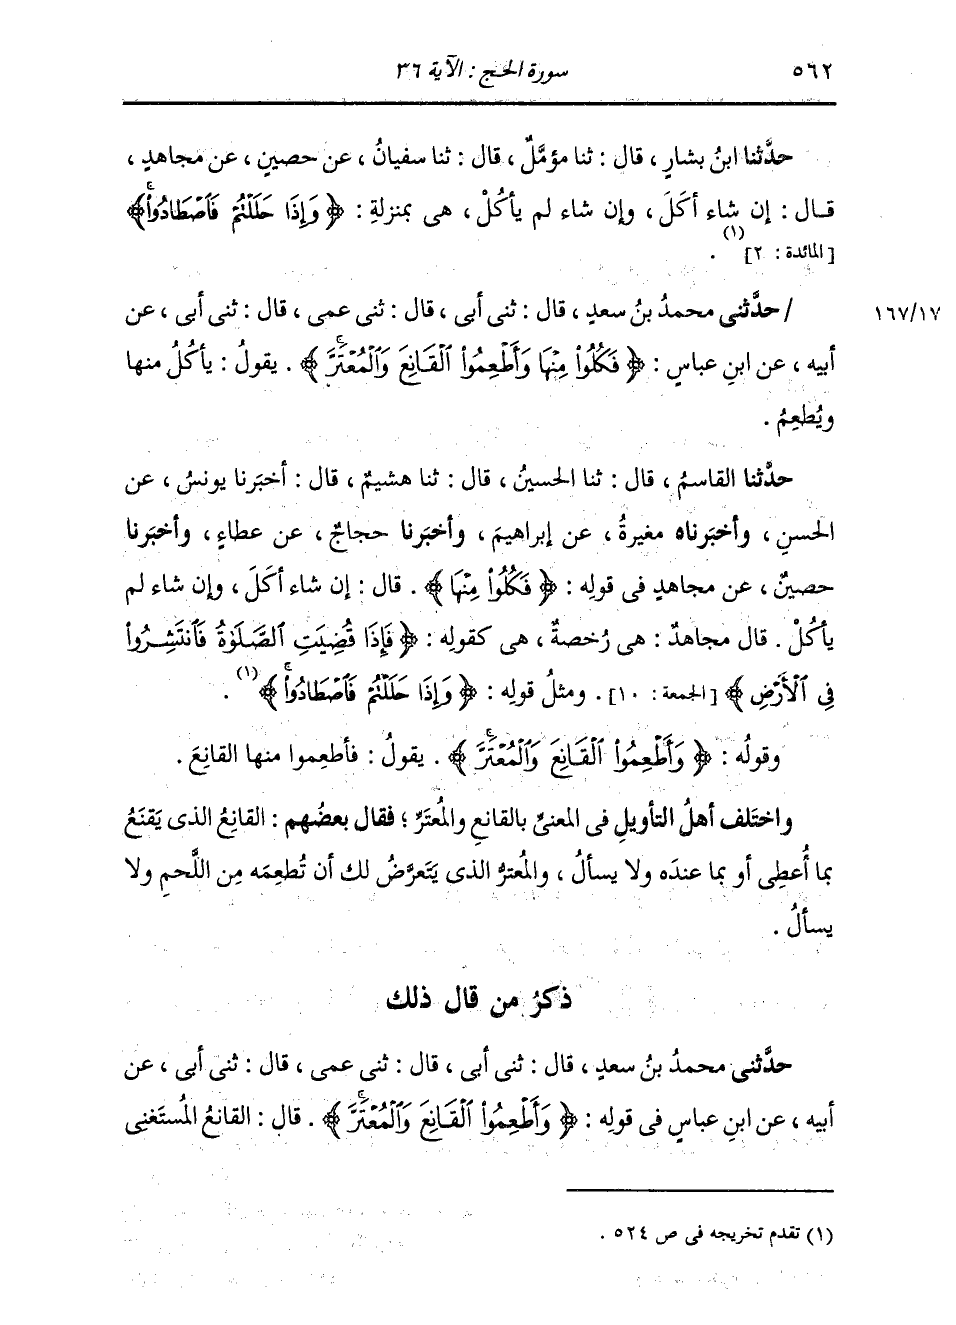 ٥٦٢
سورة الحج : الآية ٣٦
حدَّثنا ابنُ بشارٍ ، قال : ثنا مؤمَّلٌ ، قال : ثنا سفيانُ ، عن حصينٍ ، عن مجاهدٍ ،
قال : إن شاء أكَلَ ، وإن شاء لم يأكُلْ ، هى بمنزلةِ : ﴿ وَإِذَا حَلَلْتُمْ فَٱصْطَادُواْۚ ﴾
[المائدة : ٢] (١) .
/ حدَّثنى محمدُ بنُ سعدٍ ، قال : ثنى أبى ، قال : ثنى عمى ، قال : ثنى أبى ، عن
١٦٧/١٧
أبيه ، عن ابنِ عباسٍ : ﴿ فَكُلُواْ مِنْهَا وَأَطْعِمُواْ ٱلْقَانِعَ وَٱلْمُعْتَرَّۚ ﴾ . يقولُ : يأكُلُ منها
ويُطعِمُ .
حدَّثنا القاسمُ ، قال : ثنا الحسينُ ، قال : ثنا هشيمٌ ، قال : أخبَرنا يونسُ ، عن
الحسنِ ، وأخبَرناه مغيرةُ ، عن إبراهيمَ ، وأخبَرنا حجاجٌ ، عن عطاءٍ ، وأخبَرنا
حصينٌ ، عن مجاهدٍ فى قولِه : ﴿ فَكُلُواْ مِنْهَا ﴾ . قال : إن شاء أكَلَ ، وإن شاء لم
يأكُلْ . قال مجاهدٌ : هى رُخصةٌ ، هى كقولِه : ﴿ فَإِذَا قُضِيَتِ ٱلصَّلَوٰةُ فَٱنتَشِرُواْ
فِى ٱلْأَرْضِ ﴾ [الجمعة : ١٠] . ومثلُ قولِه : ﴿ وَإِذَا حَلَلْتُمْ فَٱصْطَادُواْۚ ﴾ (١) .
وقولُه : ﴿ وَأَطْعِمُواْ ٱلْقَانِعَ وَٱلْمُعْتَرَّۚ ﴾ . يقولُ : فأطعِموا منها القانِعَ .
واختَلف أهلُ التأويلِ فى المعنىِّ بالقانعِ والمُعترِّ ؛ فقال بعضُهم : القانِعُ الذى يَقنَعُ
بما أُعطِى أو بما عندَه ولا يسألُ ، والمُعترُّ الذى يَتَعرَّضُ لك أن تُطعِمَه مِن اللَّحمِ ولا
يسألُ .
ذكرُ من قال ذلك
حدَّثنى محمدُ بنُ سعدٍ ، قال : ثنى أبى ، قال : ثنى عمى ، قال : ثنى أبى ، عن
أبيه ، عن ابنِ عباسٍ فى قولِه : ﴿ وَأَطْعِمُواْ ٱلْقَانِعَ وَٱلْمُعْتَرَّۚ ﴾ . قال : القانعُ المُستَغنِى
(١) تقدم تخريجه فى ص ٥٢٤ .